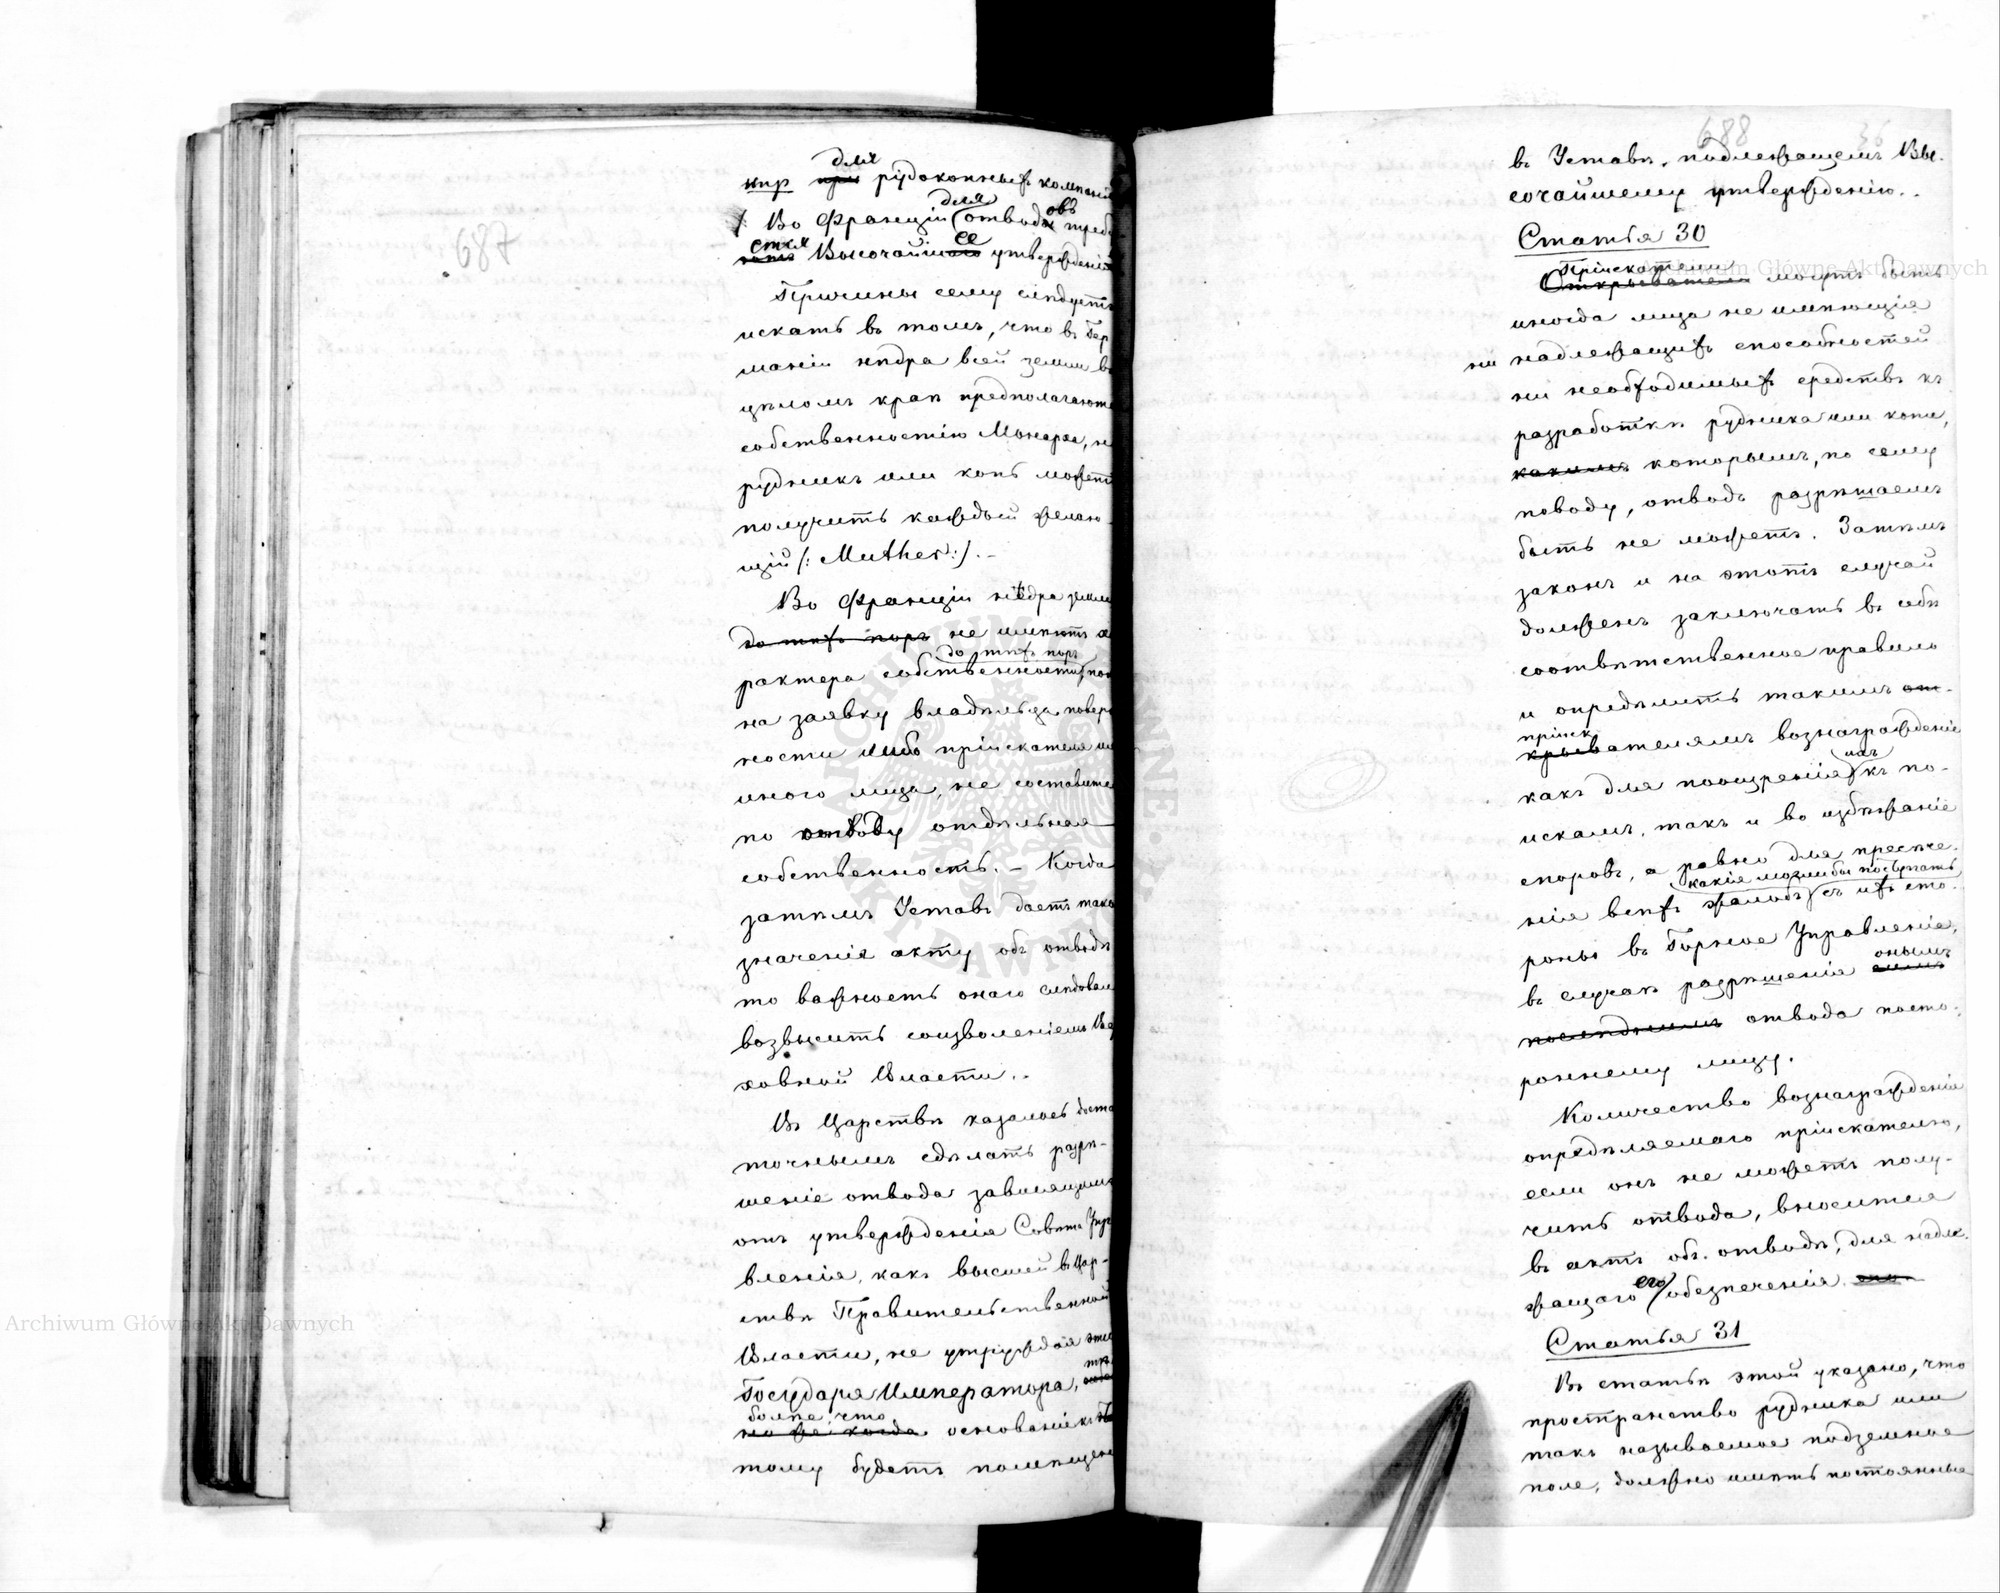 687
для
кир при рудокопныхъ компаній
Во Франціи для отводовъ треб
ется Высочайшее утвержденіе
Причины сему слѣдуетъ
искать въ томъ, что въ Гер
маніи нѣдра всей земли въ
цѣломъ краѣ предполагаются
собственностію Монарха, и
рудникъ или копь можетъ
получить каждый желаю-
щій /: Muther :/. –
Во Франціи нѣдра земли
до тѣхъ поръ не имѣютъ ха
до тѣхъ поръ
рактера собственности, пок
на заявку владѣльца поверх
ности либо пріискателя ил
иного лица, не составитъ
по отводу отдѣльная
собственность. – Когда
затѣмъ Уставъ даетъ тако
значеніе акту объ отводѣ
то важность онаго слѣдовал
возвысить соизволеніемъ Вер
ховной Власти..
Въ Царствѣ казалось доста
точнымъ сдѣлать разрѣ-
шеніе отвода зависящимъ
отъ утвержденія Совѣта Упр
вленія, какъ высшей въ Цар-
ствѣ Правительственной
Власти, не утруждая этим
Государя Императора,
болѣе, что
но же когда основаніе къ
тому будетъ помѣщено
688
36
въ Уставѣ, подлежащемъ Вы-
сочайшему утвержденію..
Статья 30
Пріискатели
Открыватели могутъ быть
иногда лица не имѣющія
ни надлежащихъ способностей
ни необходимыхъ средствъ къ
разработкѣ рудника или копи,
какимъ которымъ, по сему
поводу, отводъ разрѣшаемъ
быть не можетъ. Затѣмъ
законъ и на этотъ случай
долженъ заключать въ себѣ
соотвѣтственное правило
и опредѣлить такимъ от-
пріиск
крывателямъ вознагражденіе
ихъ
какъ для поощренія къ по-
искамъ, такъ и во избѣжаніе
споровъ, а равно для пресѣче-
какія могли бы поступать
нія всѣхъ жалобъ съ ихъ сто-
роны въ Горное Управленіе,
онымъ
въ случаѣ разрѣшенія симъ
послѣднимъ отвода посто-
роннему лицу.
Количество вознагражденія
опредѣляемаго пріискателю,
если онъ не можетъ полу-
чить отвода, вносится
въ актъ объ отводѣ, для надле-
жащаго его обезпеченія.
Статья 31
Въ статьѣ этой указано, что
пространство рудника или
такъ называемое подземное
поле, должно имѣть постоянные
Archiwum Główne Akt Dawnych
Archiwum Główne Akt Dawnych